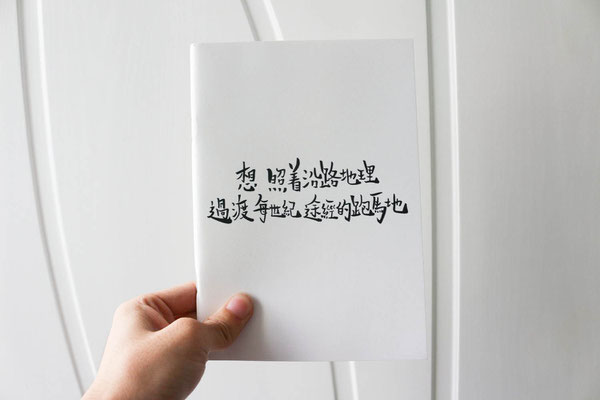 想 照着沿路地理
過渡 每世紀 途經的跑馬地